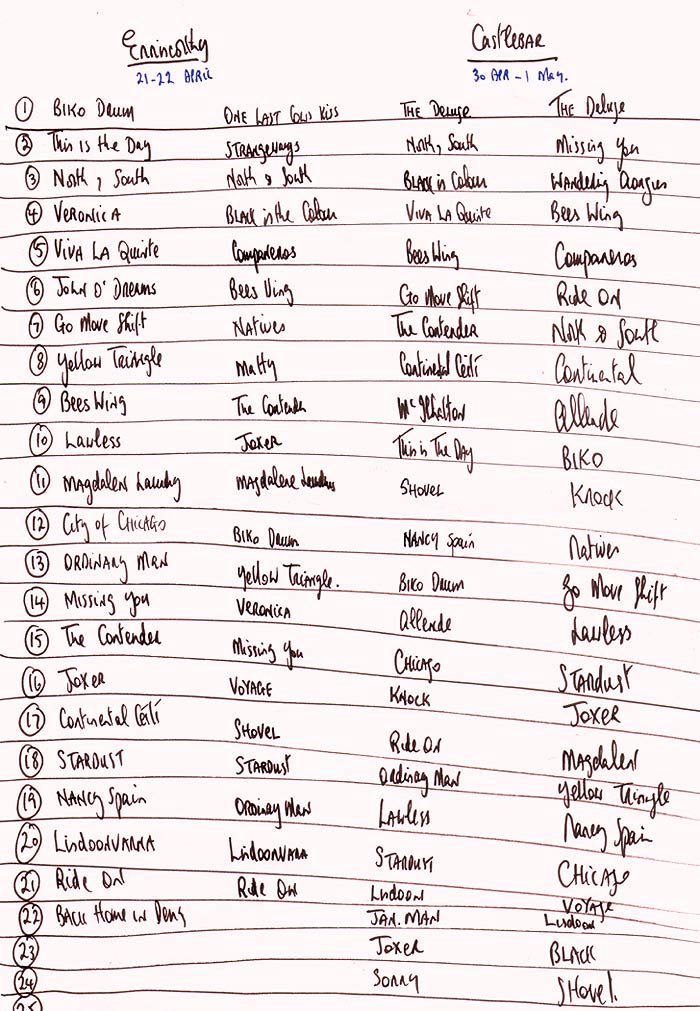 Enniscorthy Castlebar
21-22 April 30 APR - 1 May.
1 Biko Drum One Last Cold Kiss The Deluge The Deluge
2 This is the Day Strangeways North, South Missing You
3 North, South North & South Black is Colour Wandering Aongus
4 Veronica Black is the Colour Viva La Quinte Bees Wing
5 Viva La Quinte Companeros Bees Wing Companeros
6 John O' Dreams Bees Wing Go Move Shift Ride On
7 Go Move Shift Natives The Contender North & South
8 Yellow Triangle Matty Continental Céilí Continental
9 Bees Wing The Contender McIlhatton Allende
10 Lawless Joxer This is The Day Biko
11 Magdalen Laundry Magdalene Laundries Shovel Knock
12 City of Chicago Biko Drum Nancy Spain Natives
13 Ordinary Man Yellow Triangle. Biko Drum Go Move Shift
14 Missing You Veronica Allende Lawless
15 The Contender Missing You Chicago Stardust
16 Joxer Voyage Knock Joxer
17 Continental Céilí Shovel Ride On Magdalen
18 Stardust Stardust Ordinary Man Yellow Triangle
19 Nancy Spain Ordinary Man Lawless Nancy Spain
20 Lisdoonvarna Lisdoonvara Stardust Chicago
21 Ride On Ride On Lisdoon Voyage
22 Back Home in Derry Jan. Man Lisdoon
23 Joxer Black
24 Sonny Shovel.
25